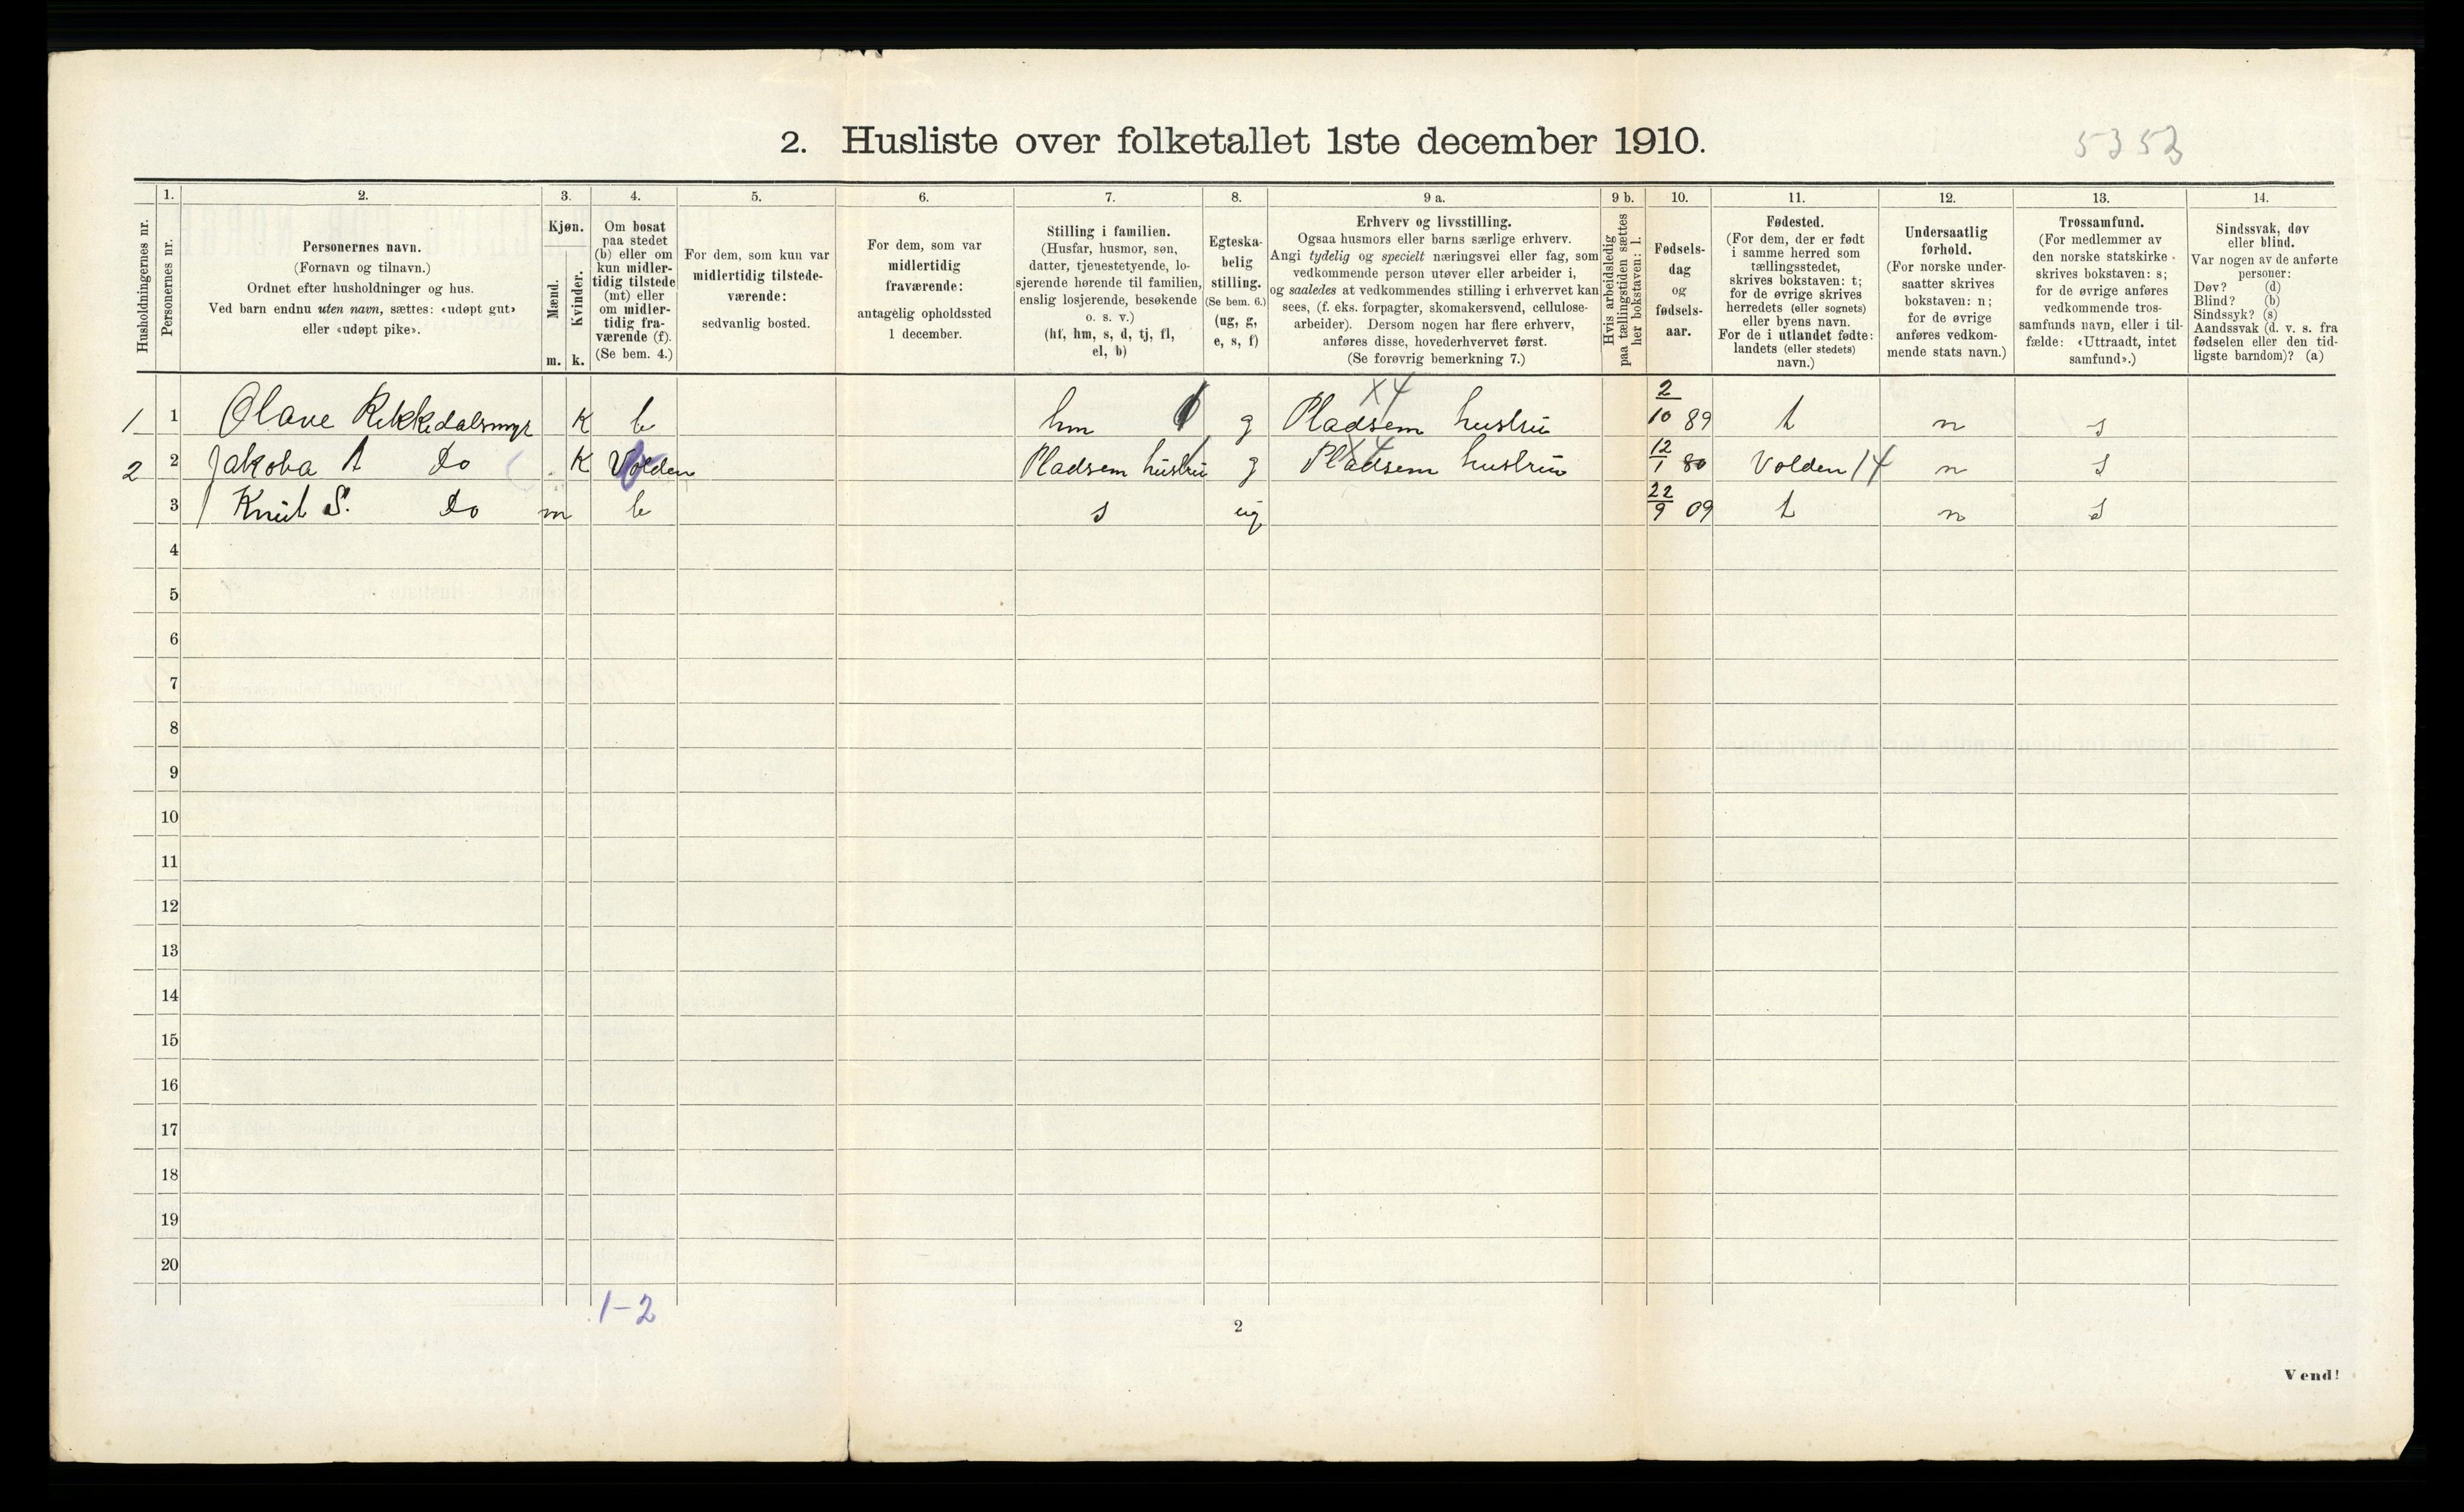 2. Husliste over folketallet 1ste december 1910.
5353
Husholdningernes nr.
1.
Personernes nr.
2.
Personernes navn.
(Fornavn og tilnavn.)
Ordnet efter husholdninger og hus.
Ved barn endnu uten navn, sættes: «udøpt gut»
eller «udøpt pike».
3.
Kjøn.
Mænd.
Kvinder.
m. k.
4.
Om bosat
paa stedet
(b) eller om
kun midler-
tidig tilstede
(mt) eller
om midler-
tidig fra-
værende (f).
(Se bem. 4.)
5.
For dem, som kun var
midlertidig tilstede-
værende:
sedvanlig bosted.
6.
For dem, som var
midlertidig
fraværende:
antagelig opholdssted
1 december.
7.
Stilling i familien.
(Husfar, husmor, søn,
datter, tjenestetyende, lo-
sjerende hørende til familien,
enslig losjerende, besøkende
o. s. v.)
(hf, hm, s, d, tj, fl,
el, b)
8.
Egteska-
belig
stilling.
(Se bem. 6.)
(ug, g,
e, s, f)
9 a.
Erhverv og livsstilling.
Ogsaa husmors eller barns særlige erhverv.
Angi tydelig og specielt næringsvei eller fag, som
vedkommende person utøver eller arbeider i,
og saaledes at vedkommendes stilling i erhvervet kan
sees, (f. eks. forpagter, skomakersvend, cellulose-
arbeider). Dersom nogen har flere erhverv,
anføres disse, hovederhvervet først.
(Se forøvrig bemerkning 7.)
9 b.
Hvis arbeidsledig
paa tællingstiden sættes
her bokstaven: l.
10.
Fødsels-
dag
og
fødsels-
aar.
11.
Fødested.
(For dem, der er født
i samme herred som
tællingsstedet,
skrives bokstaven: t;
for de øvrige skrives
herredets (eller sognets)
eller byens navn.
For de i utlandet fødte:
landets (eller stedets)
navn.)
12.
Undersaatlig
forhold.
(For norske under-
saatter skrives
bokstaven: n;
for de øvrige
anføres vedkom-
mende stats navn.)
13.
Trossamfund.
(For medlemmer av
den norske statskirke
skrives bokstaven: s;
for de øvrige anføres
vedkommende tros-
samfunds navn, eller i til-
fælde: «Uttraadt, intet
samfund».)
14.
Sindssvak, døv
eller blind.
Var nogen av de anførte
personer:
Døv? (d)
Blind? (b)
Sindssyk? (s)
Aandssvak (d. v. s. fra
fødselen eller den tid-
ligste barndom)? (a)
1 1 Olave Rekkedalsmyr K b hm g Pladsem hustru X4 2/10 89 t n s
2 2 Jakoba A Do K Volden Pladsem hustru g Pladsem hustru X4 12/1 80 Volden 14 n s
3 Knut S. Do m b s ug 22/9 09 t n s
4
5
6
7
8
9
10
11
12
13
14
15
16
17
18
19
20
1-2
2
Vend!